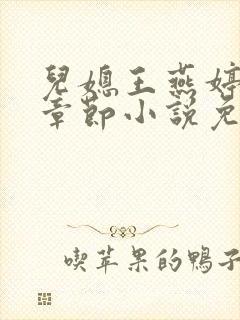 兒媳王燕婷
章節小說免
喫苹果的鴨子